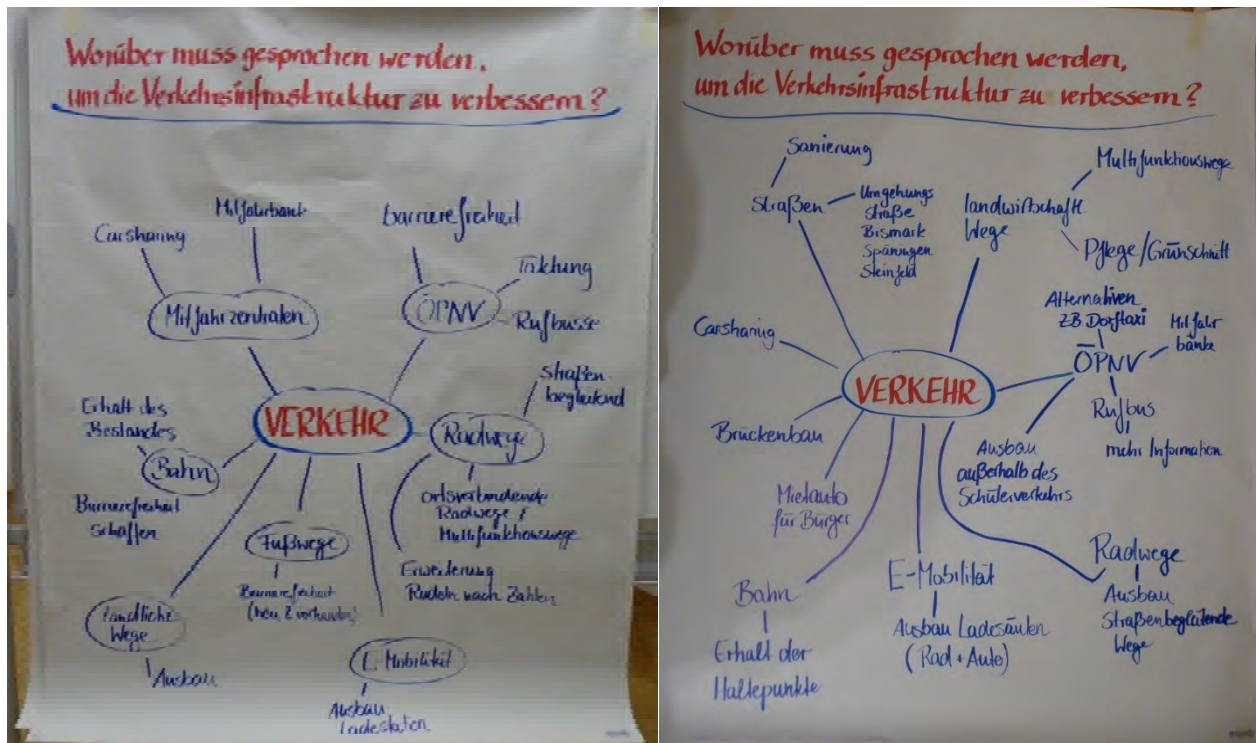 Worüber muss gesprochen werden,
um die Verkehrsinfrastruktur zu verbessern?
Mitfahrbank
Carsharing
Mitfahrzentralen
barrierefreiheit
Taktung
ÖPNV
Rufbusse
Straßen-
begleitend
VERKEHR
Radwege
Erhalt des
Bestandes
Bahn
Barrierefreiheit
schaffen
Ortsverbindende
Radwege &
Multifunktionswege
Fußwege
Barrierefreiheit
(neu & vorhanden)
Erweiterung
Radeln nach Zahlen
ländliche
Wege
Ausbau
E Mobilität
Ausbau
Ladestaten
Worüber muss gesprochen werden,
um die Verkehrsinfrastruktur zu verbessern?
Sanierung
Straßen
Umgehungs
straße
Bismark
Spänungen
Steinfeld
landwirtschaftl
Wege
Multifunktionswege
Pflege/Grünschnitt
Carsharing
Alternativen
ZB Dorftaxi
Mitfahr
bänke
ÖPNV
VERKEHR
Rufbus
mehr Information
Brückenbau
Ausbau
außerhalb des
Schülerverkehrs
Mietauto
für Bürger
Bahn
Erhalt der
Haltepunkte
E-Mobilität
Ausbau Ladesäulen
(Rad + Auto)
Radwege
Ausbau
Straßenbegleitende
Wege